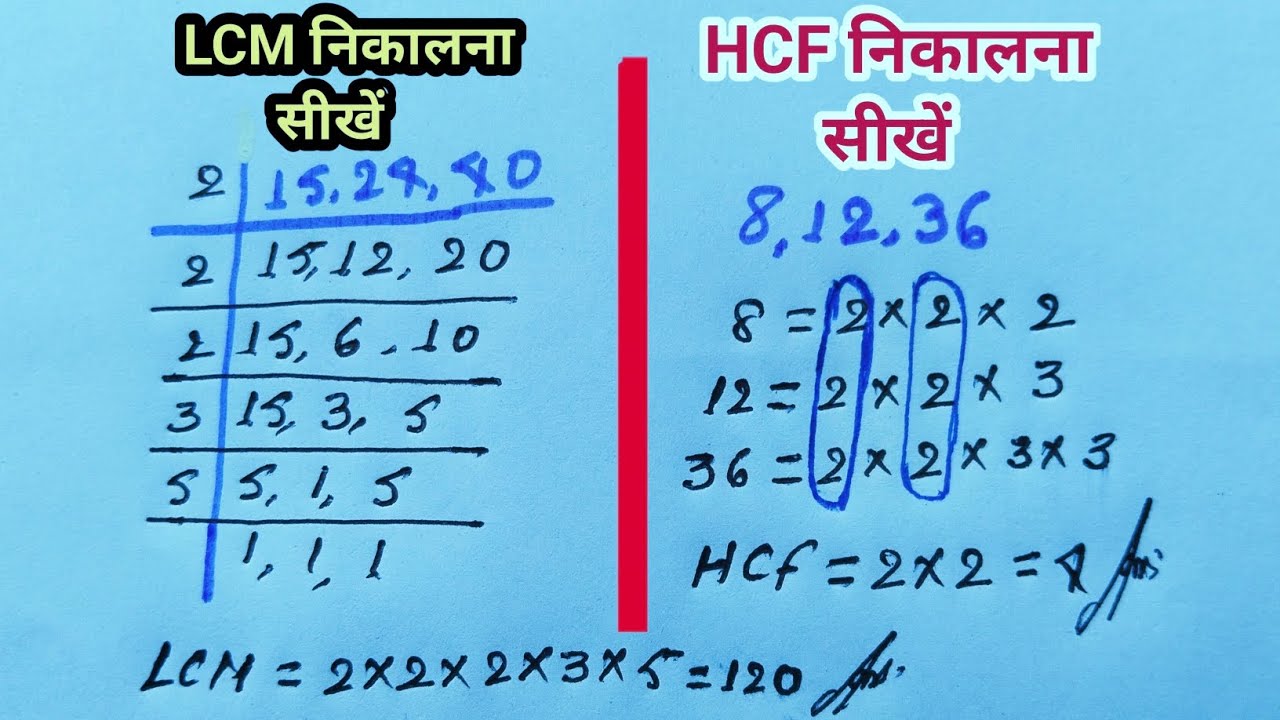 LCM निकालना
सीखें
2 15, 24, 40
2 15, 12, 20
2 15, 6, 10
3 15, 3, 5
5 5, 1, 5
1, 1, 1
LCM = 2×2×2×3×5=120 Ans.
HCF निकालना
सीखें
8, 12, 36
8 = 2 × 2 × 2
12 = 2 × 2 × 3
36 = 2 × 2 × 3 × 3
HCf = 2×2 = 4 Ans.